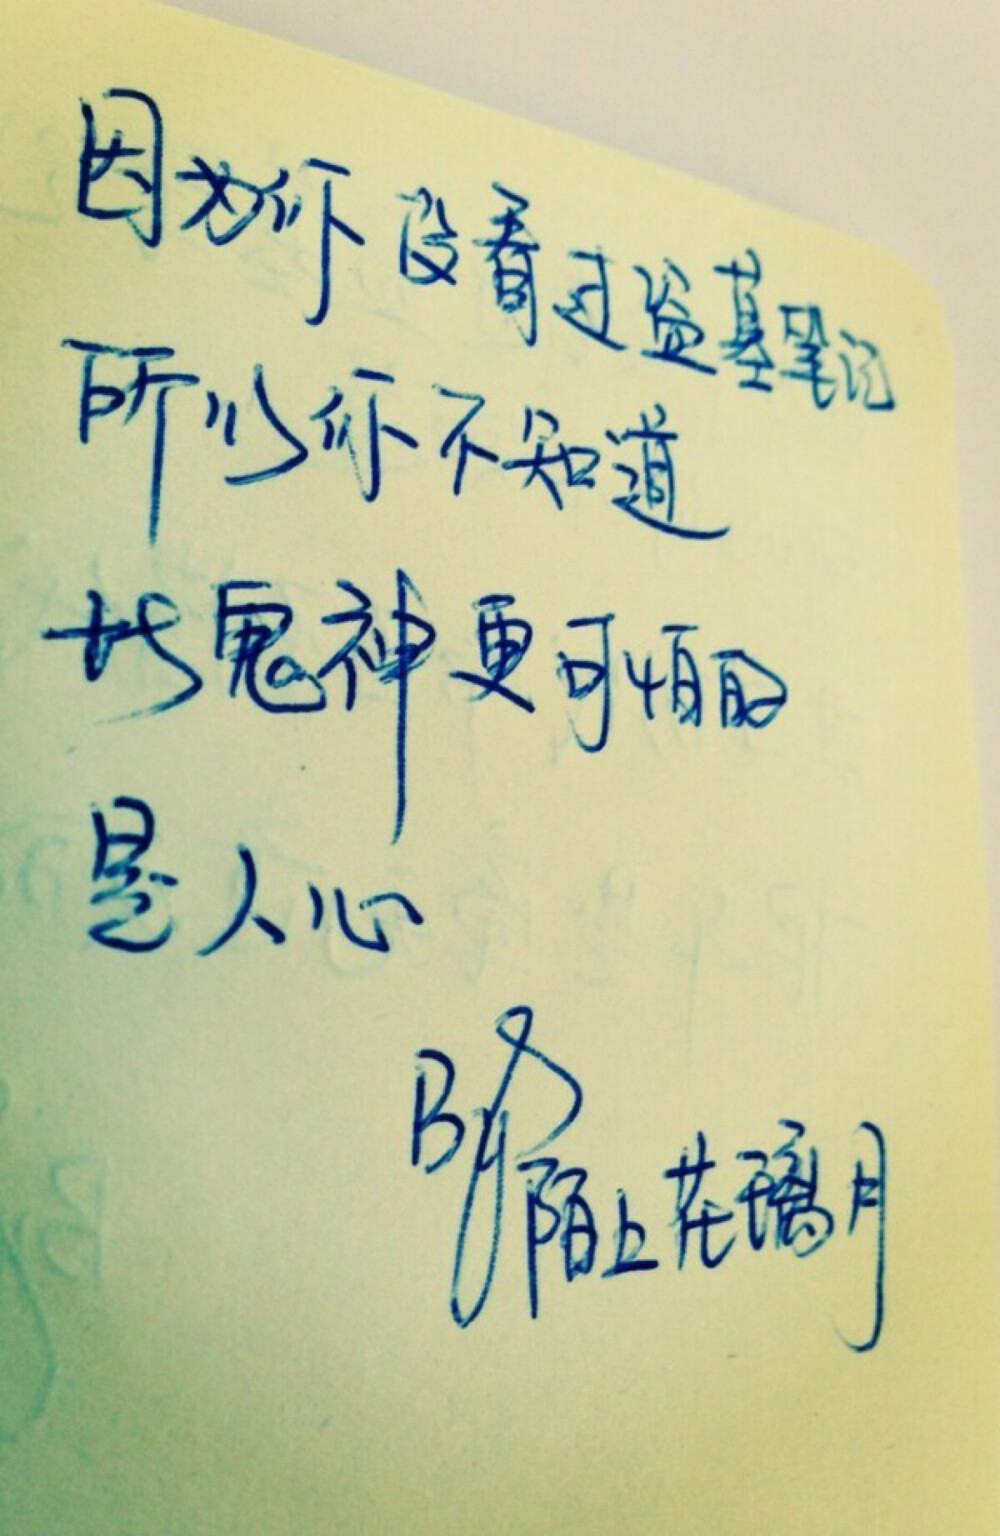 因为你没看过盗墓笔记
所以你不知道
比鬼神更可怕的
是人心
By陌上花璃月